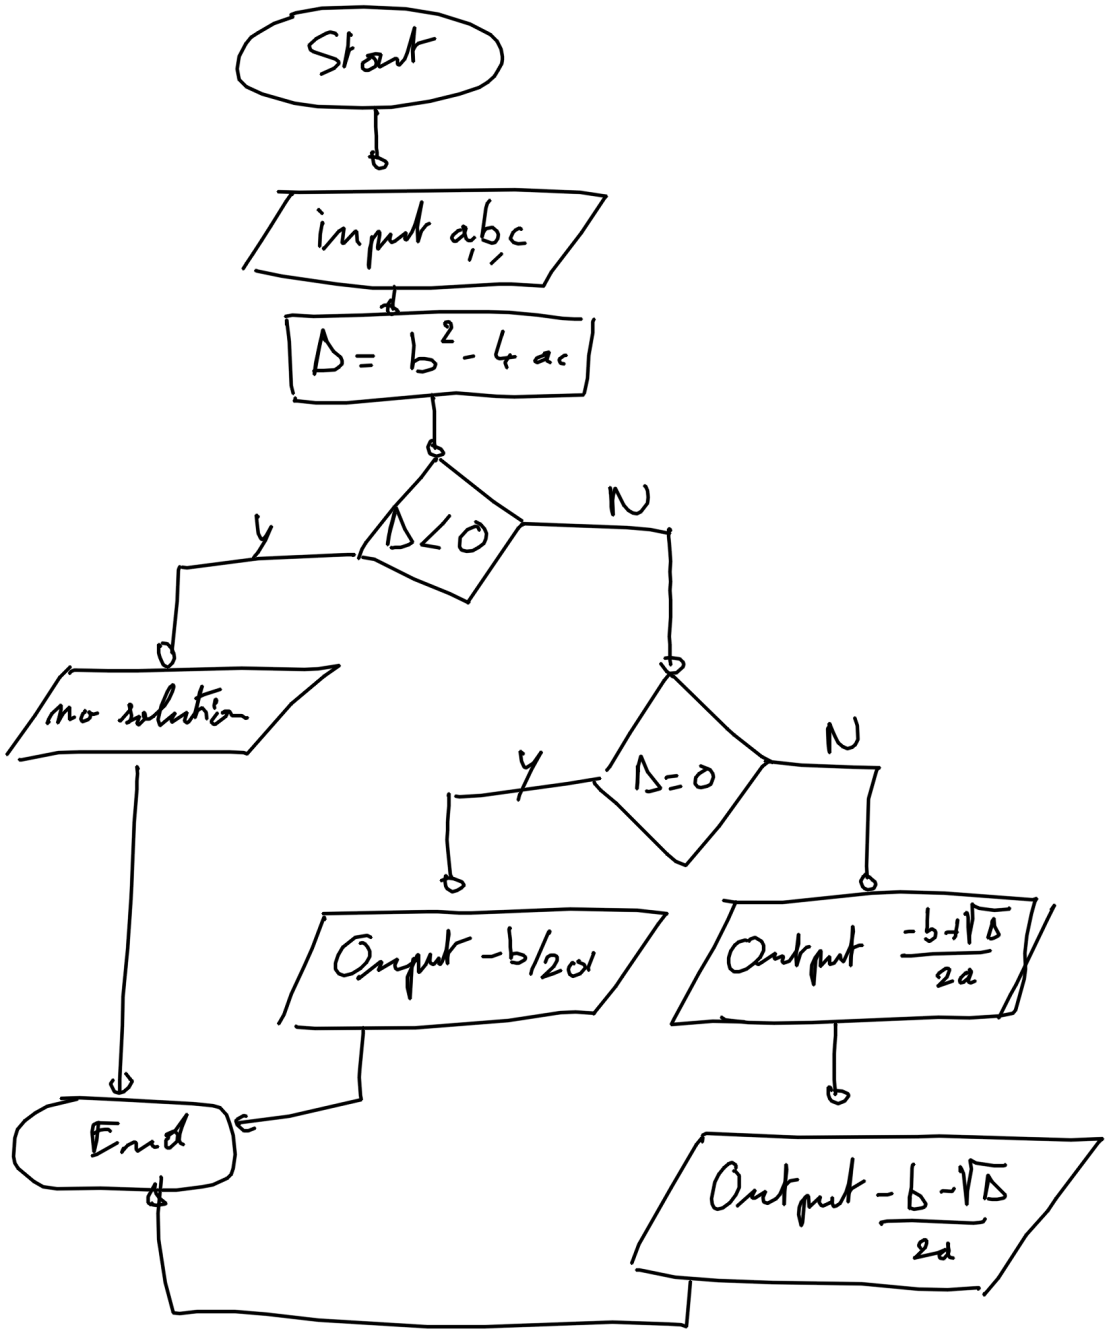 Start
input a,b,c
Δ = b² - 4 ac
Δ < 0
Y
N
no solution
Δ = 0
Y
N
Output -b/2a
Output (-b+√Δ)/2a
End
Output (-b-√Δ)/2a